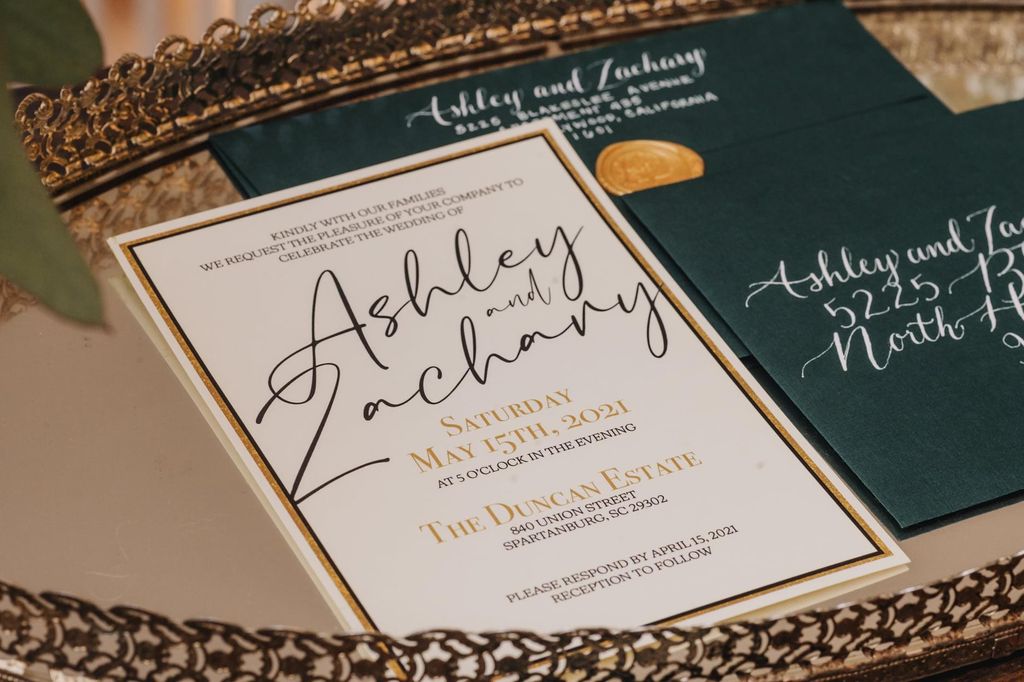 Ashley and Zachary
5225 BLAKESLEE AVENUE
CALIFORNIA
KINDLY WITH OUR FAMILIES
WE REQUEST THE PLEASURE OF YOUR COMPANY TO
CELEBRATE THE WEDDING OF
Ashley
and
Zachary
SATURDAY
MAY 15TH, 2021
AT 5 O'CLOCK IN THE EVENING
THE DUNCAN ESTATE
840 UNION STREET
SPARTANBURG, SC 29302
PLEASE RESPOND BY APRIL 15, 2021
RECEPTION TO FOLLOW
Ashley and
5225
North